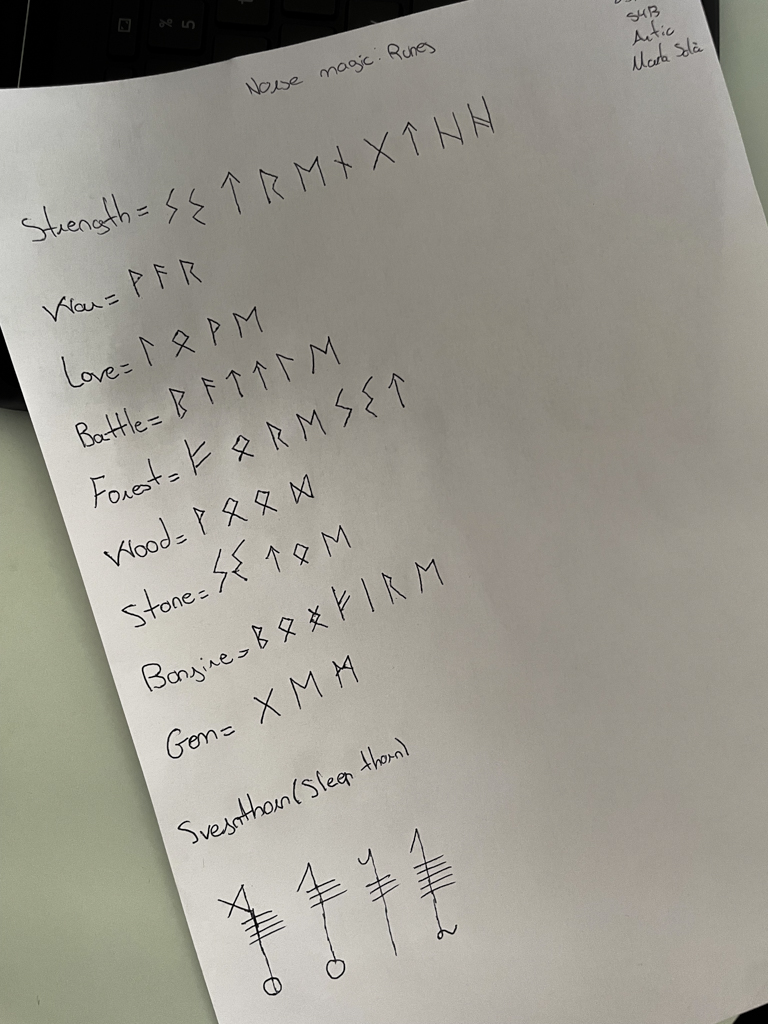 S4B
Artic
Marta Solà
Norse magic: Runes
Strength = ᛊ ᛏ ᚱ ᛖ ᚾ ᚷ ᛏ ᚺ
War = ᚹ ᚨ ᚱ
Love = ᛚ ᛟ ᚹ ᛖ
Battle = ᛒ ᚨ ᛏ ᛏ ᛚ ᛖ
Forest = ᚠ ᛟ ᚱ ᛖ ᛊ ᛏ
Wood = ᚹ ᛟ ᛟ ᛞ
Stone = ᛊ ᛏ ᛟ ᛖ
Bonfire = ᛒ ᛟ ᚠ ᛁ ᚱ ᛖ
Gem = ᚷ ᛖ ᛗ
(Sleep thorn)